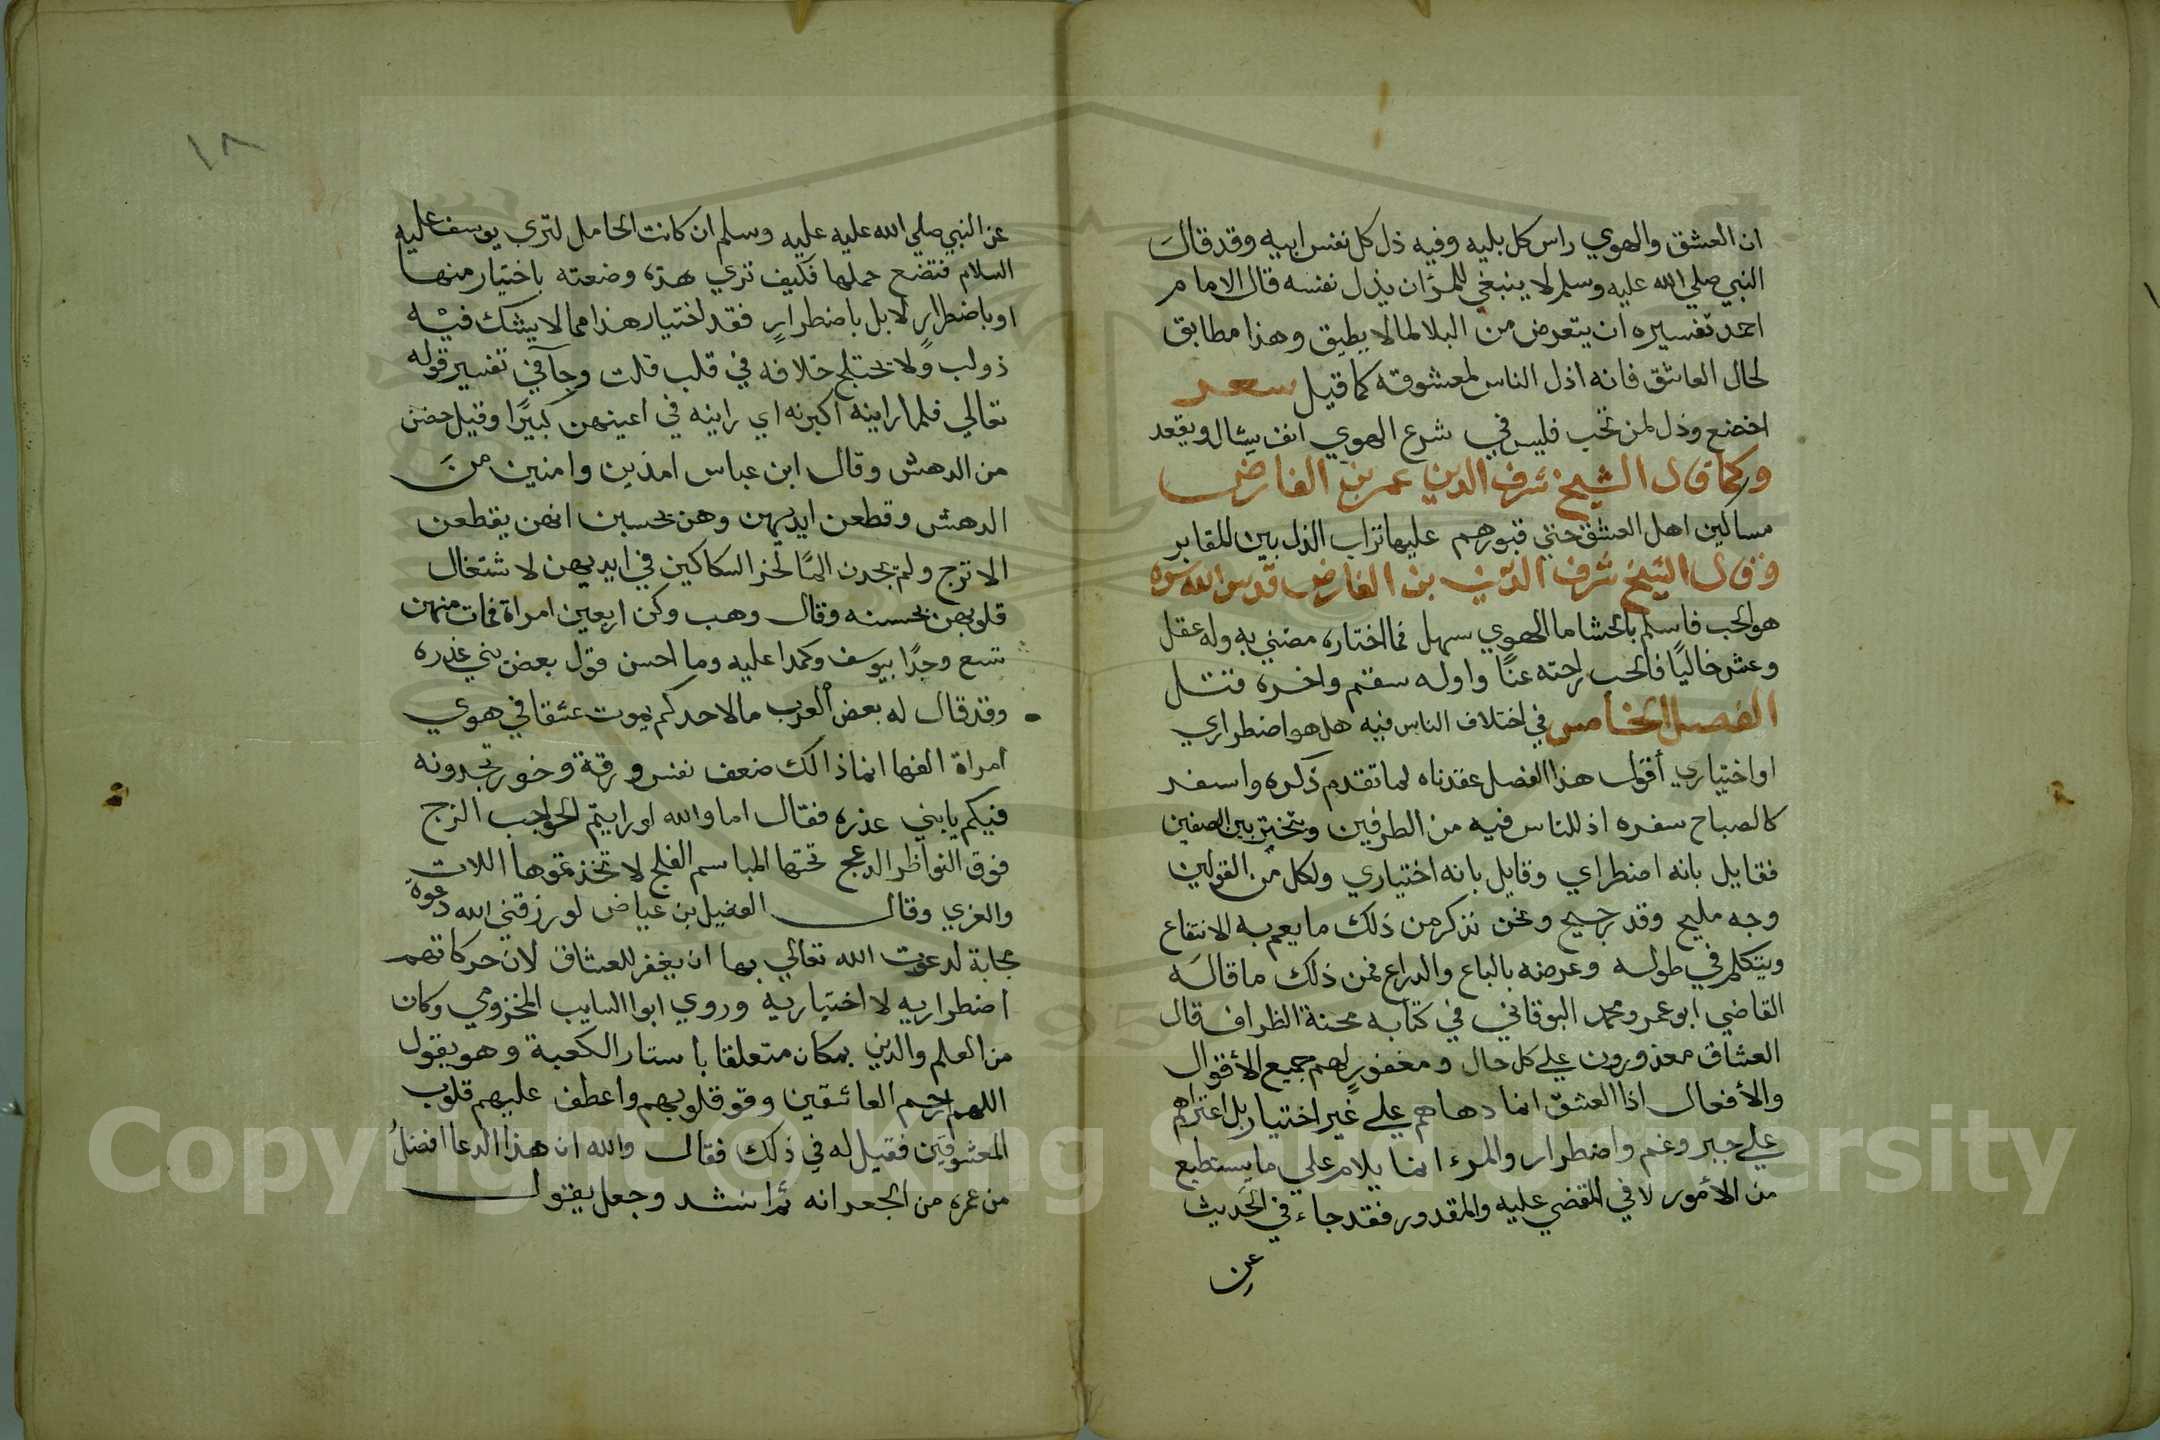 ان العشق والهوي راس كل بليه وفيه ذل كل نفس ابيه وقد قال
النبي صلي الله عليه وسلم لا ينبغي للمرٔان يذل نفسه قال الامام
احمد تفسيره ان يتعرض من البلا لما لا يطيق وهذا مطابق
لحال العاشق فانه اذل الناس لمعشوقه كما قيل سعد
اخضع وذل لمن تحب فليس في شرع الهوي انف يشال ويقعد
وكما قال الشيخ شرف الدين عمر بن الفارض
مساكين اهل العشق حتي قبورهم عليها تراب الذل بين المقابر
وقال الشيخ شرف الدين بن الفارض قدس الله سره
هو الحب فاسلم بالحشا ما الهوي سهل فما اختاره مضني به وله عقل
وعش خاليًا فالحب راحته عنًا واوله سقم واخره قتل
الفصل الخامس في اختلاف الناس فيه هل هو اضطراري
او اختياري أقول هذا الفصل عقدناه لما تقدم ذكره واسفر
كالصباح سفره اذ للناس فيه من الطرفين وتبختر بين الصفين
فقايل بانه اضطراي وقايل بانه اختياري ولكل من القولين
وجه مليح وقد رجيح ونحن نذكر من ذلك ما يعم به الانتفاع
ويتكلم في طوله وعرضه بالباع والدراع فمن ذلك ما قاله
القاضي ابو عمر ومحمد البوقاني في كتابه محنة الظراف قال
العشاق معذورون علي كل حال ومغفور لهم جميع الأقوال
والأفعال اذا العشق انما دهاهم علي غير اختيار بل اعتراهم
علي جبر وغم واضطرار والمرء انما يلام علي ما يستطيع
من الأمور لا في المقضي عليه والمقدور فقد جاء في الحديث
عن
١٨
عن النبي صلي الله عليه عليه وسلم ان كانت الحامل لتري يوسف عليه
السلام فتضع حملها فكيف تري هذه وضعته باختيار منها
او باضطرار لا بل باضطرار فقد اختيار هذا مما لا يشك فيه
ذو لب ولا يختلج خلافه في قلب قلت وجآ في تفسير قوله
تعالي فلما راينه اكبرنه اي راينه في اعينهن كبيرًا وقيل حضن
من الدهش وقال ابن عباس امذين وامنين من
الدهش وقطعن ايديهن وهن يحسبن انهن يقطعن
الاترج ولم يجدن المًا لحز السكاكين في ايديهن لاشتغال
قلوبهن بحسنه وقال وهب وكن اربعين امراة فمات منهن
تسع وجدًا بيوسف وكمدا عليه وما احسن قول بعض بني عذره
وقد قال له بعض العرب ما لاحدكم يموت عشقا في هوي
امراة الفها انما ذالك ضعف نفس ورقة وخور تجدونه
فيكم يا بني عذره فقال اما والله لو رايتم الحواجب الزج
فوق النواظر الدعج تحتها المباسم الفلج لاتخذتموها اللات
والعزي وقال الفضيل بن عياض لو رزقني الله دعوة
مجابة لدعوت الله تعالي بها ان يغفر للعشاق لان حركاتهم
اضطراريه لا اختياريه وروي ابوا السايب المخزومي وكان
من العلم والدين بمكان متعلقا باستار الكعبة وهو يقول
اللهم ارحم العاشقين وقو قلوبهم واعطف عليهم قلوب
المعشوقين فقيل له في ذلك فقال والله ان هذا الدعا افضل
من عمره من الجعرانه ثم انشد وجعل يقول
Copyright © King Saud University